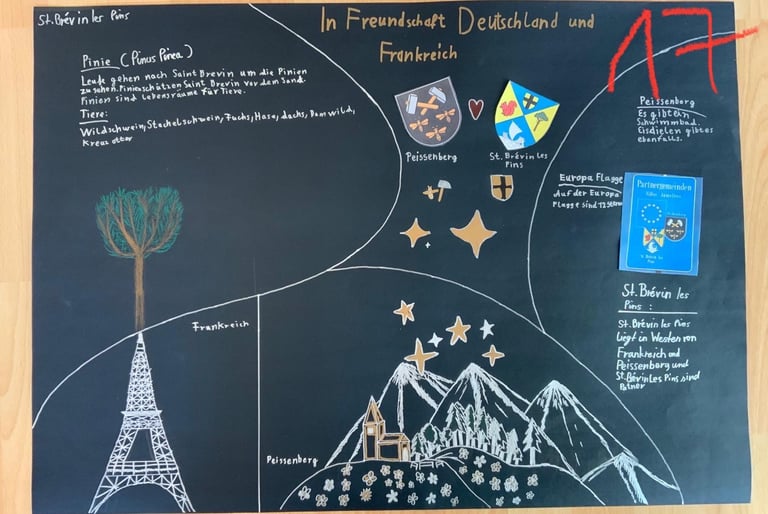 St. Brévin les Pins
In Freundschaft Deutschland und
Frankreich
17
Pinie (Pinus Pinea)
Leute gehen nach Saint Brevin um die Pinien
zu sehen. Pinien schätzen Saint Brevin vor dem Sand.
Pinien sind Lebensräume für Tiere.
Tiere:
Wildschwein, Stachelschwein, Fuchs, Hase, dachs, Damwild,
Kreuzotter
Peissenberg
St. Brévin les
Pins
Peissenberg
Es gibt ein
Schwimmbad.
Eisdielen gibt es
ebenfalls.
Europa Flagge
Auf der Europa
Flagge sind 12 Sterne
Partnergemeinden
St. Brévin les
Pins
St. Brévin les
Pins:
St. Brévin les Pins
liegt in Westen von
Frankreich und
Peissenberg und
St. Brévin Les Pins sind
Partner
Frankreich
Peissenberg